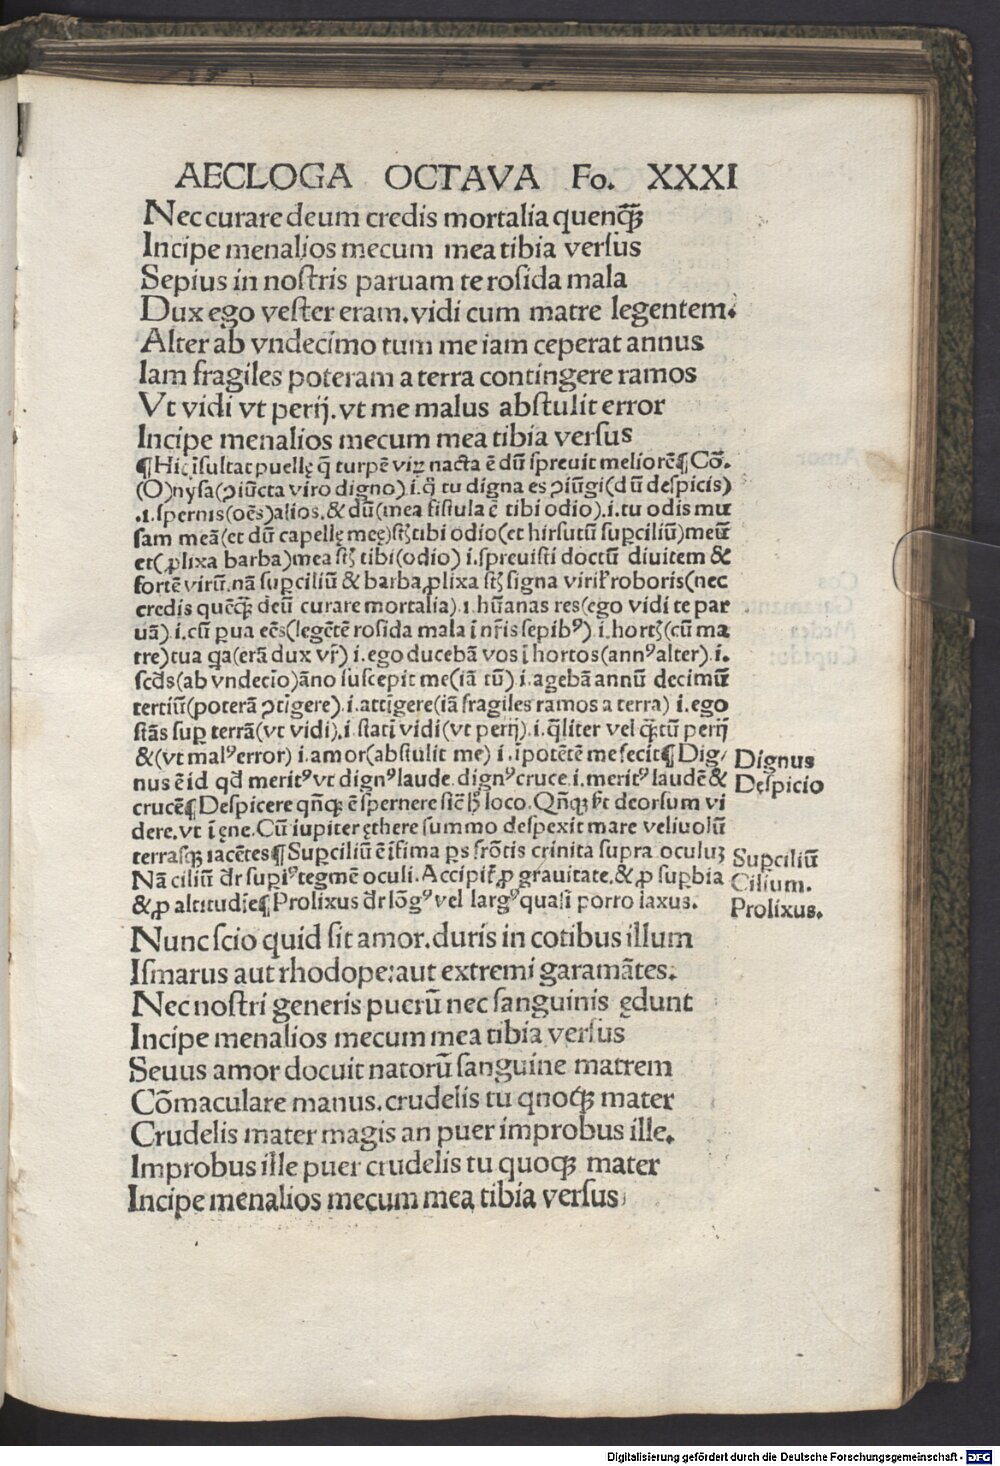 AECLOGA OCTAVA Fo. XXXI
Nec curare deum credis mortalia quenꝙꝫ
Incipe menalios mecum mea tibia verſus
Sepius in noſtris paruam te roſida mala
Dux ego veſter eram. vidi cum matre legentem.
Alter ab vndecimo tum me iam ceperat annus
Iam fragiles poteram a terra contingere ramos
Vt vidi vt perij. vt me malus abſtulit error
Incipe menalios mecum mea tibia verſus
¶Hic īſultat puellę q̄ turpē viꝝ nacta ē dū ſpreuit meliorē¶Cō.
(O)nyſa(ↄiūcta viro digno).i.q̄ tu digna es ↄiūgi(dū deſpicis)
.i.ſpernis(oēs)alios.&dū(mea fiſtula ē tibi odio).i.tu odis mu
ſam meā(et dū capellę meę)ſtꝫ tibi odio(et hirſutū ſuꝑciliū)meū
et(ꝓlixa barba)mea ſtꝫ tibi(odio) i.ſpreuiſti doctū diuitem &
fortē virū.nā ſuꝑciliū & barba ꝓlixa ſtꝫ ſigna viril' roboris(nec
credis quēꝙꝫ deū curare mortalia).i.hūanas res(ego vidi te par
uā).i.cū ꝑua eēs(legētē roſida mala ī nr̄is ſepibꝰ) i.hortꝫ(cū ma
tre)tua qa(erā dux vr̄) i.ego ducebā vos ī hortos(annꝰ alter).i.
ſcd̄s(ab vndecio)āno ſuſcepit me(iā tū) i.agebā annū decimū
tertiū(poterā ↄtigere).i.attigere(iā fragiles ramos a terra) i.ego
ſtās ſuꝑ terrā(vt vidi).i ſtatī vidi(vt perij).i.q̄liter vel ꝙ̄tū perij
&(vt malꝰ error) i.amor(abſtulit me) i.īpotētē me fecit¶Dig/
nus ē id qd̄ meritꝰ vt dignꝰ laude.dignꝰ cruce.i.meritꝰ laudē &
crucē¶Deſpicere qn̄qꝫ ē ſpernere ſic̄ hͦ loco. Qn̄qꝫ vͦt deorſum vi
dere.vt ī ęne.Cū iupiter ęthere ſummo deſpexit mare veliuolū
terraſqꝫ iacētes¶Suꝑciliū ē īfima ꝑs frōtis crinita ſupra oculuꝫ
Nā ciliū dr̄ ſuꝑiꝰ tegmē oculi. Accipit̄ ꝓ grauitate.& ꝓ ſuꝑbia
& ꝓ altitudīe¶Prolixus dr̄ lōgꝰ vel largꝰ quaſi porro laxus.
Dignus
Deſpicio
Suꝑciliū
Cilium.
Prolixus.
Nunc ſcio quid ſit amor. duris in cotibus illum
Iſmarus aut rhodope: aut extremi garamātes.
Nec noſtri generis puerū nec ſanguinis ędunt
Incipe menalios mecum mea tibia verſus
Seuus amor docuit natorū ſanguine matrem
Cōmaculare manus. crudelis tu qnoqꝫ mater
Crudelis mater magis an puer improbus ille.
Improbus ille puer crudelis tu quoqꝫ mater
Incipe menalios mecum mea tibia verſus
Digitalisierung gefördert durch die Deutsche Forschungsgemeinschaft - DFG